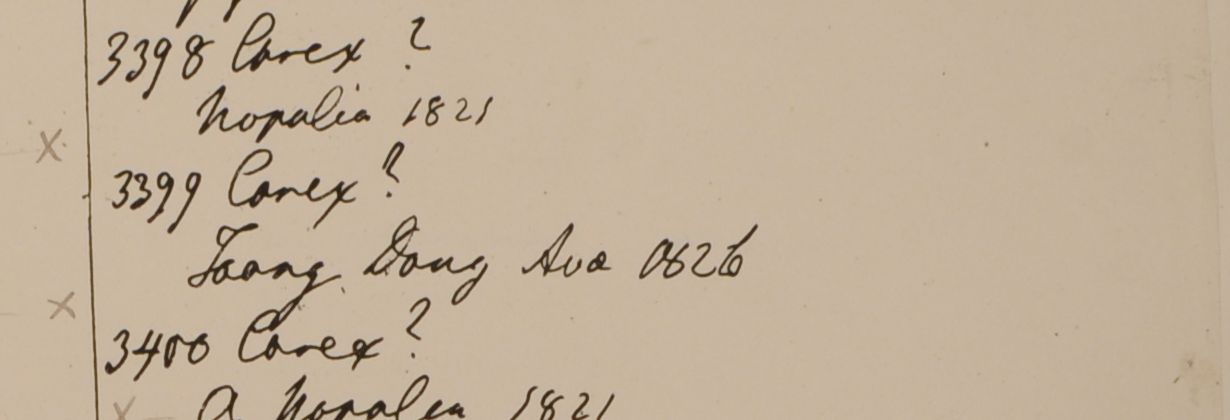 3398 Carex ?
Nopalia 1821
3399 Carex ?
Toong Dong Ava 1826
3400 Carex ?
a Nopalia 1821